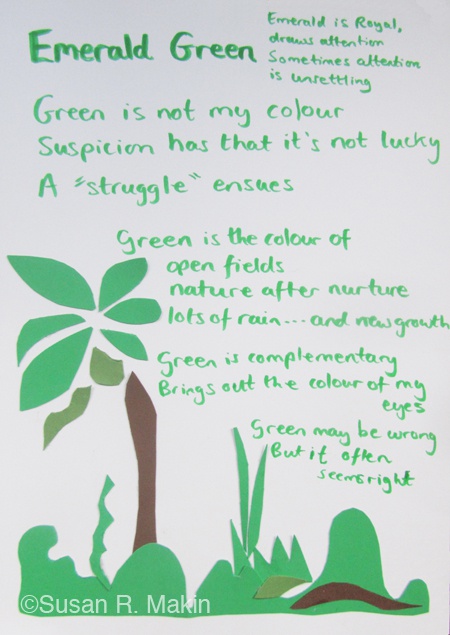 Emerald Green
Emerald is Royal,
draws attention
Sometimes attention
is unsettling
Green is not my colour
Suspicion has that it's not lucky
A "struggle" ensues
Green is the colour of
open fields
nature after nurture
lots of rain... and new growth
Green is complementary
Brings out the colour of my
eyes
Green may be wrong
But it often
seems right
©Susan R. Makin